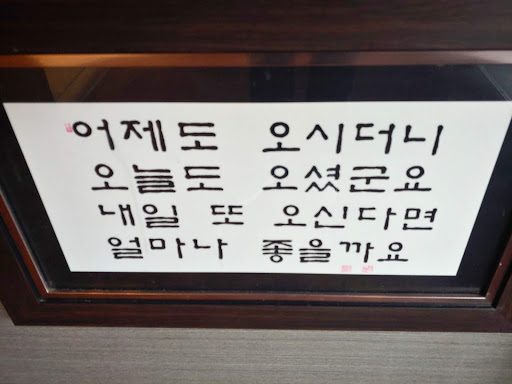 어제도 오시더니
오늘도 오셨군요
내일 또 오신다면
얼마나 좋을까요